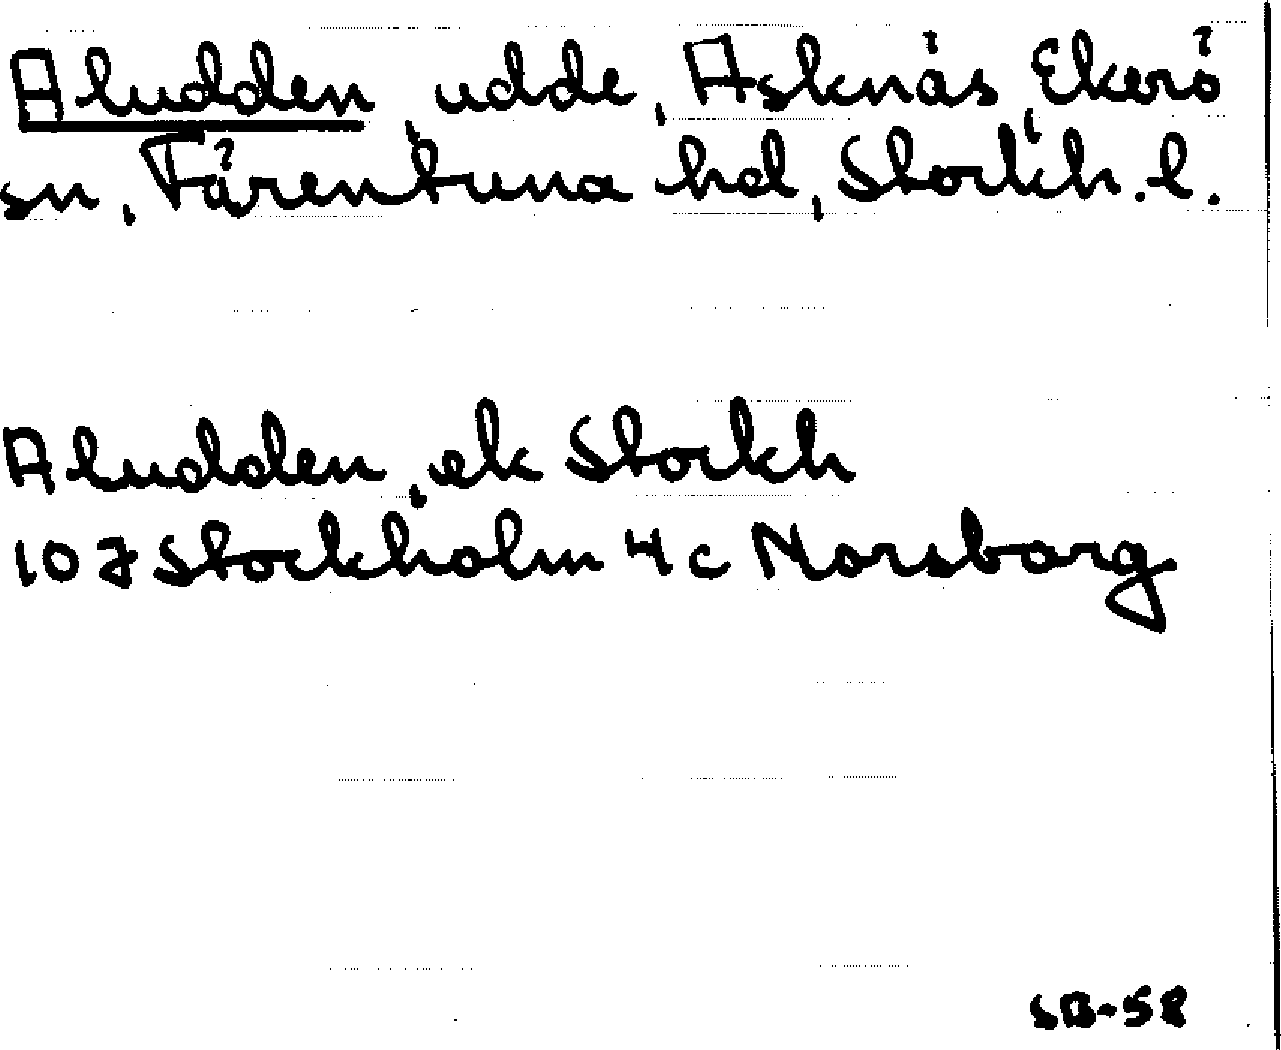 Aludden, udde, Asknäs, Ekerö
sn, Färentuna hd, Stockh. l.
Aludden, ek Stockh
10 J Stockholm 4 c Norsborg
SB-58